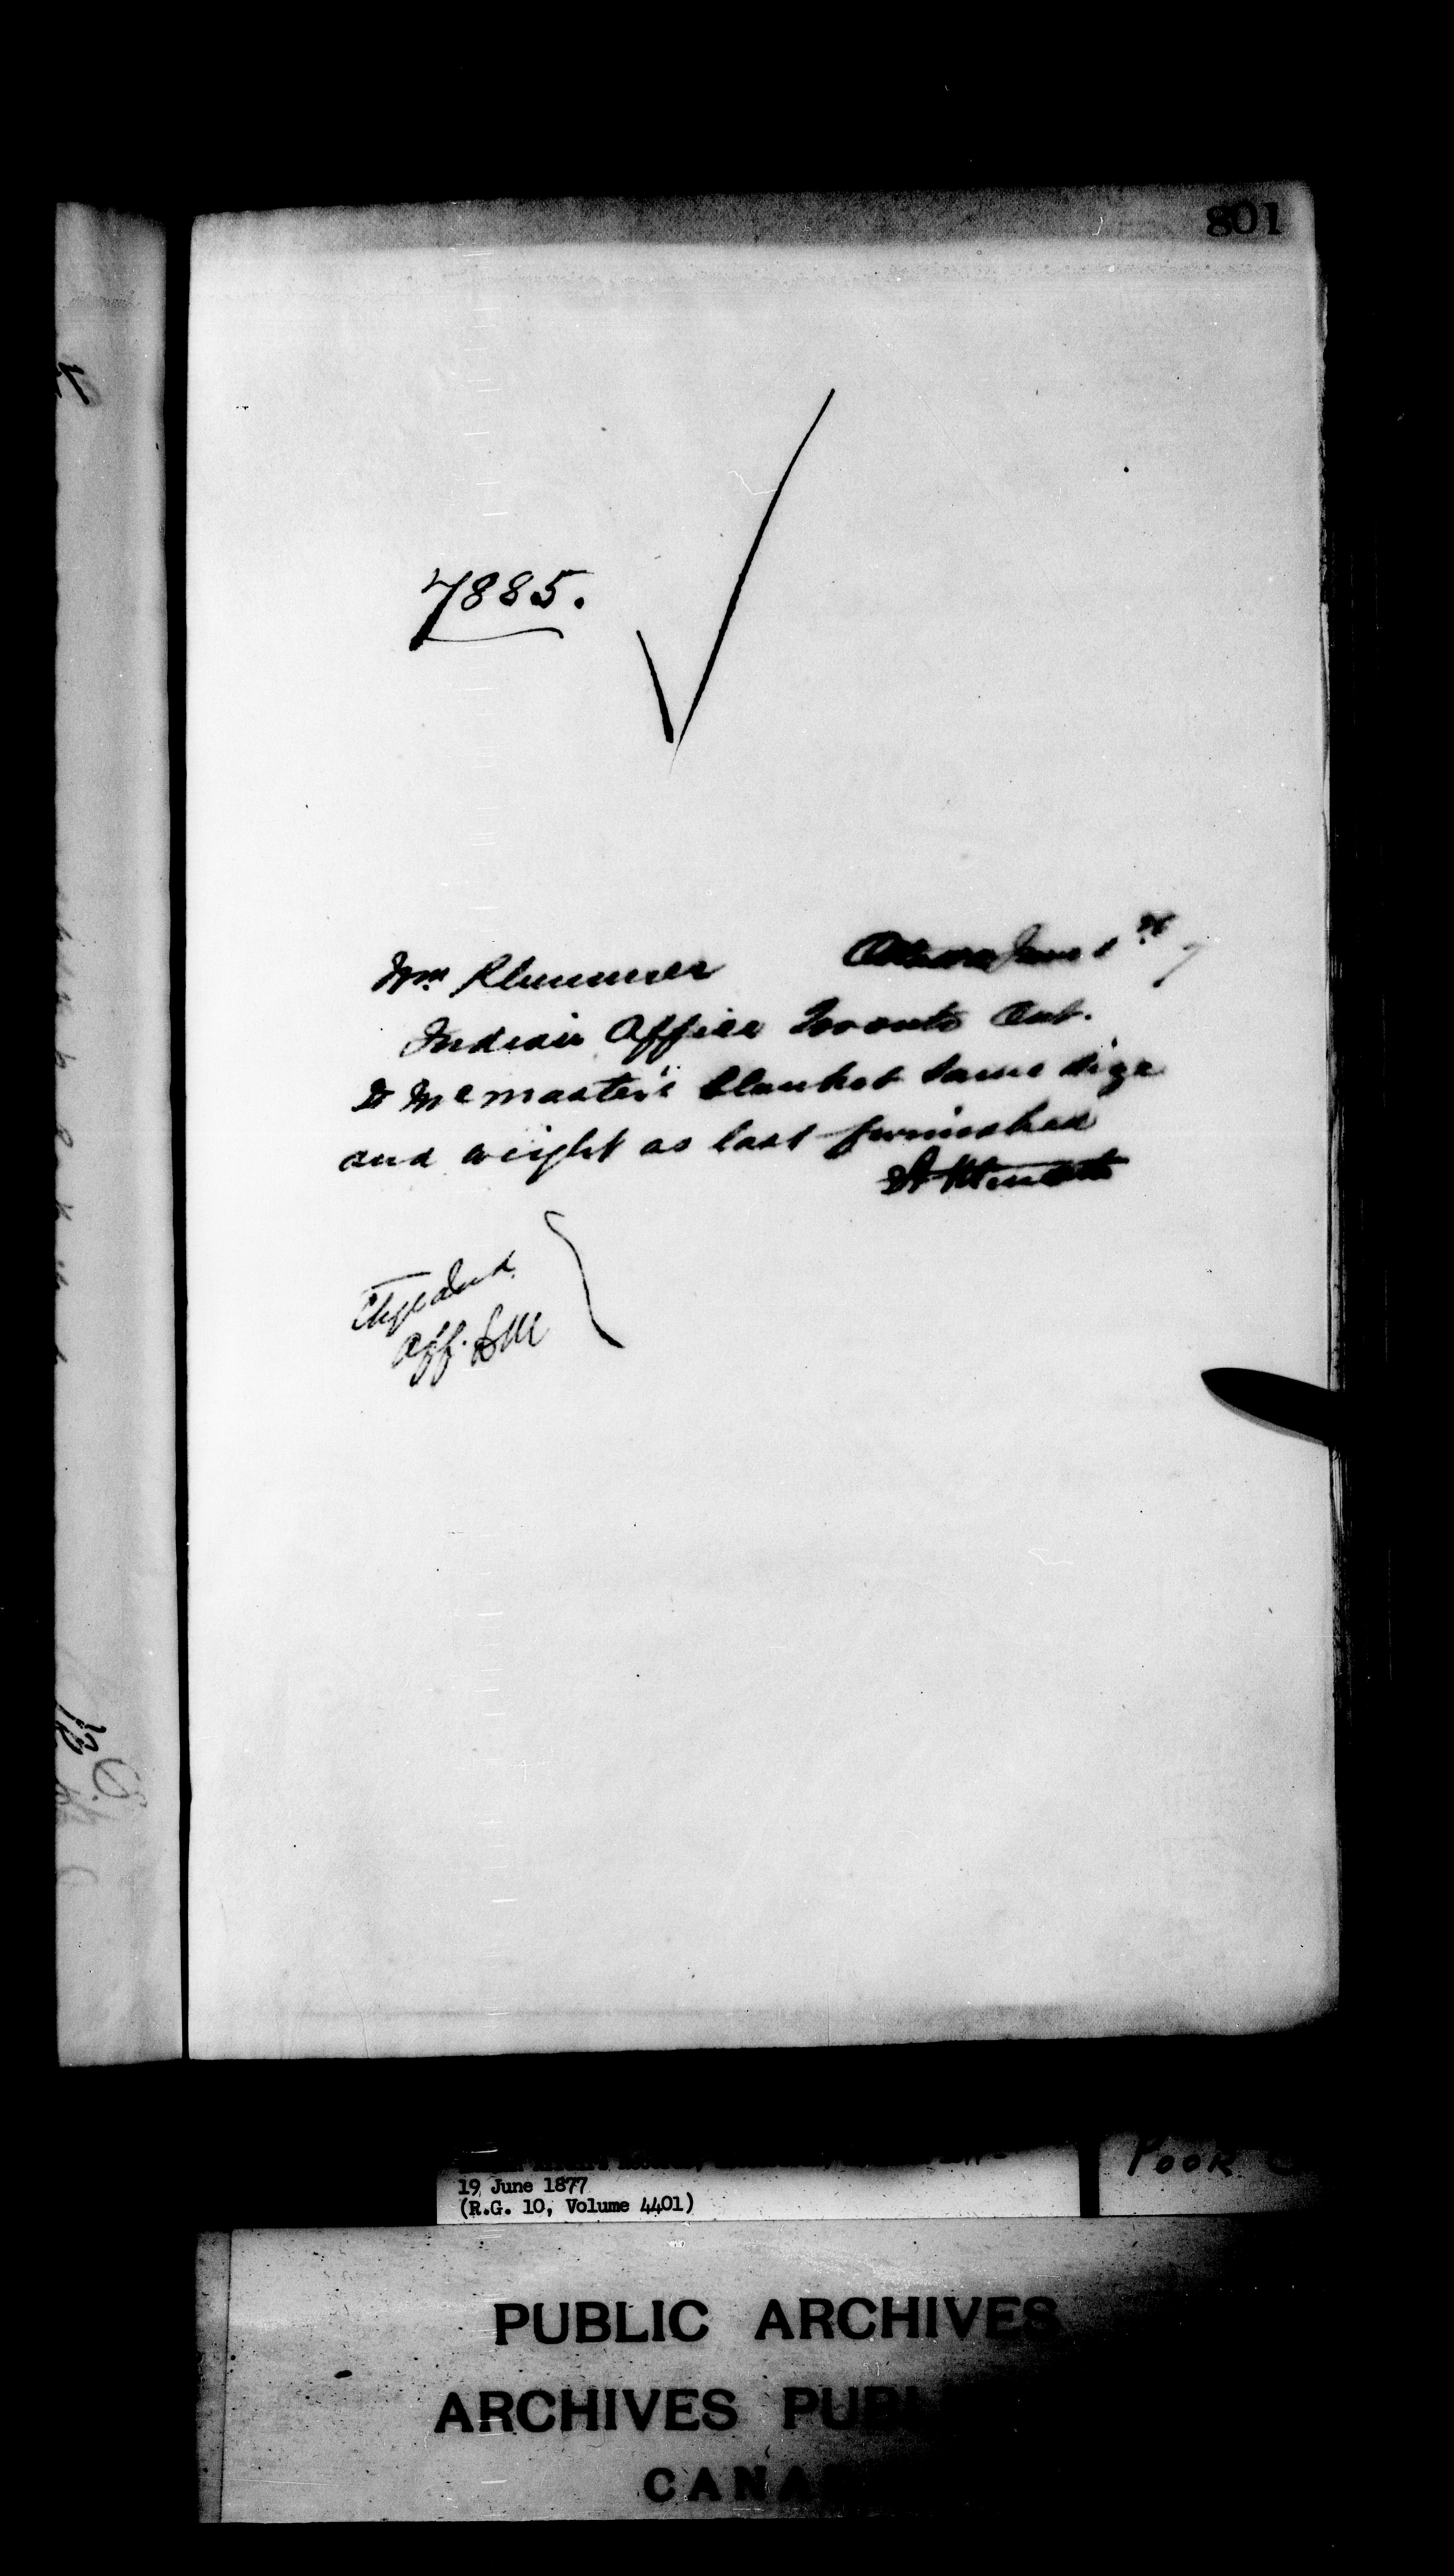 801
7885.
Wm Plummer Ottawa June
Indian Office Toronto Ont.
McMaster's blanket same size
and weight as last furnished
Chge Ind.
Off.
19 June 1877
(R.G. 10, Volume 4401)
POOR
PUBLIC ARCHIVES
ARCHIVES PUBL
CANA